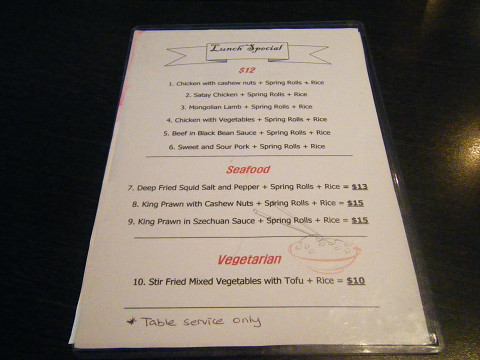 Lunch Special
$12
1. Chicken with cashew nuts + Spring Rolls + Rice
2. Satay Chicken + Spring Rolls + Rice
3. Mongolian Lamb + Spring Rolls + Rice
4. Chicken with Vegetables + Spring Rolls + Rice
5. Beef in Black Bean Sauce + Spring Rolls + Rice
6. Sweet and Sour Pork + Spring Rolls + Rice
Seafood
7. Deep Fried Squid Salt and Pepper + Spring Rolls + Rice = $13
8. King Prawn with Cashew Nuts + Spring Rolls + Rice = $15
9. King Prawn in Szechuan Sauce + Spring Rolls + Rice = $15
Vegetarian
10. Stir Fried Mixed Vegetables with Tofu + Rice = $10
* Table service only